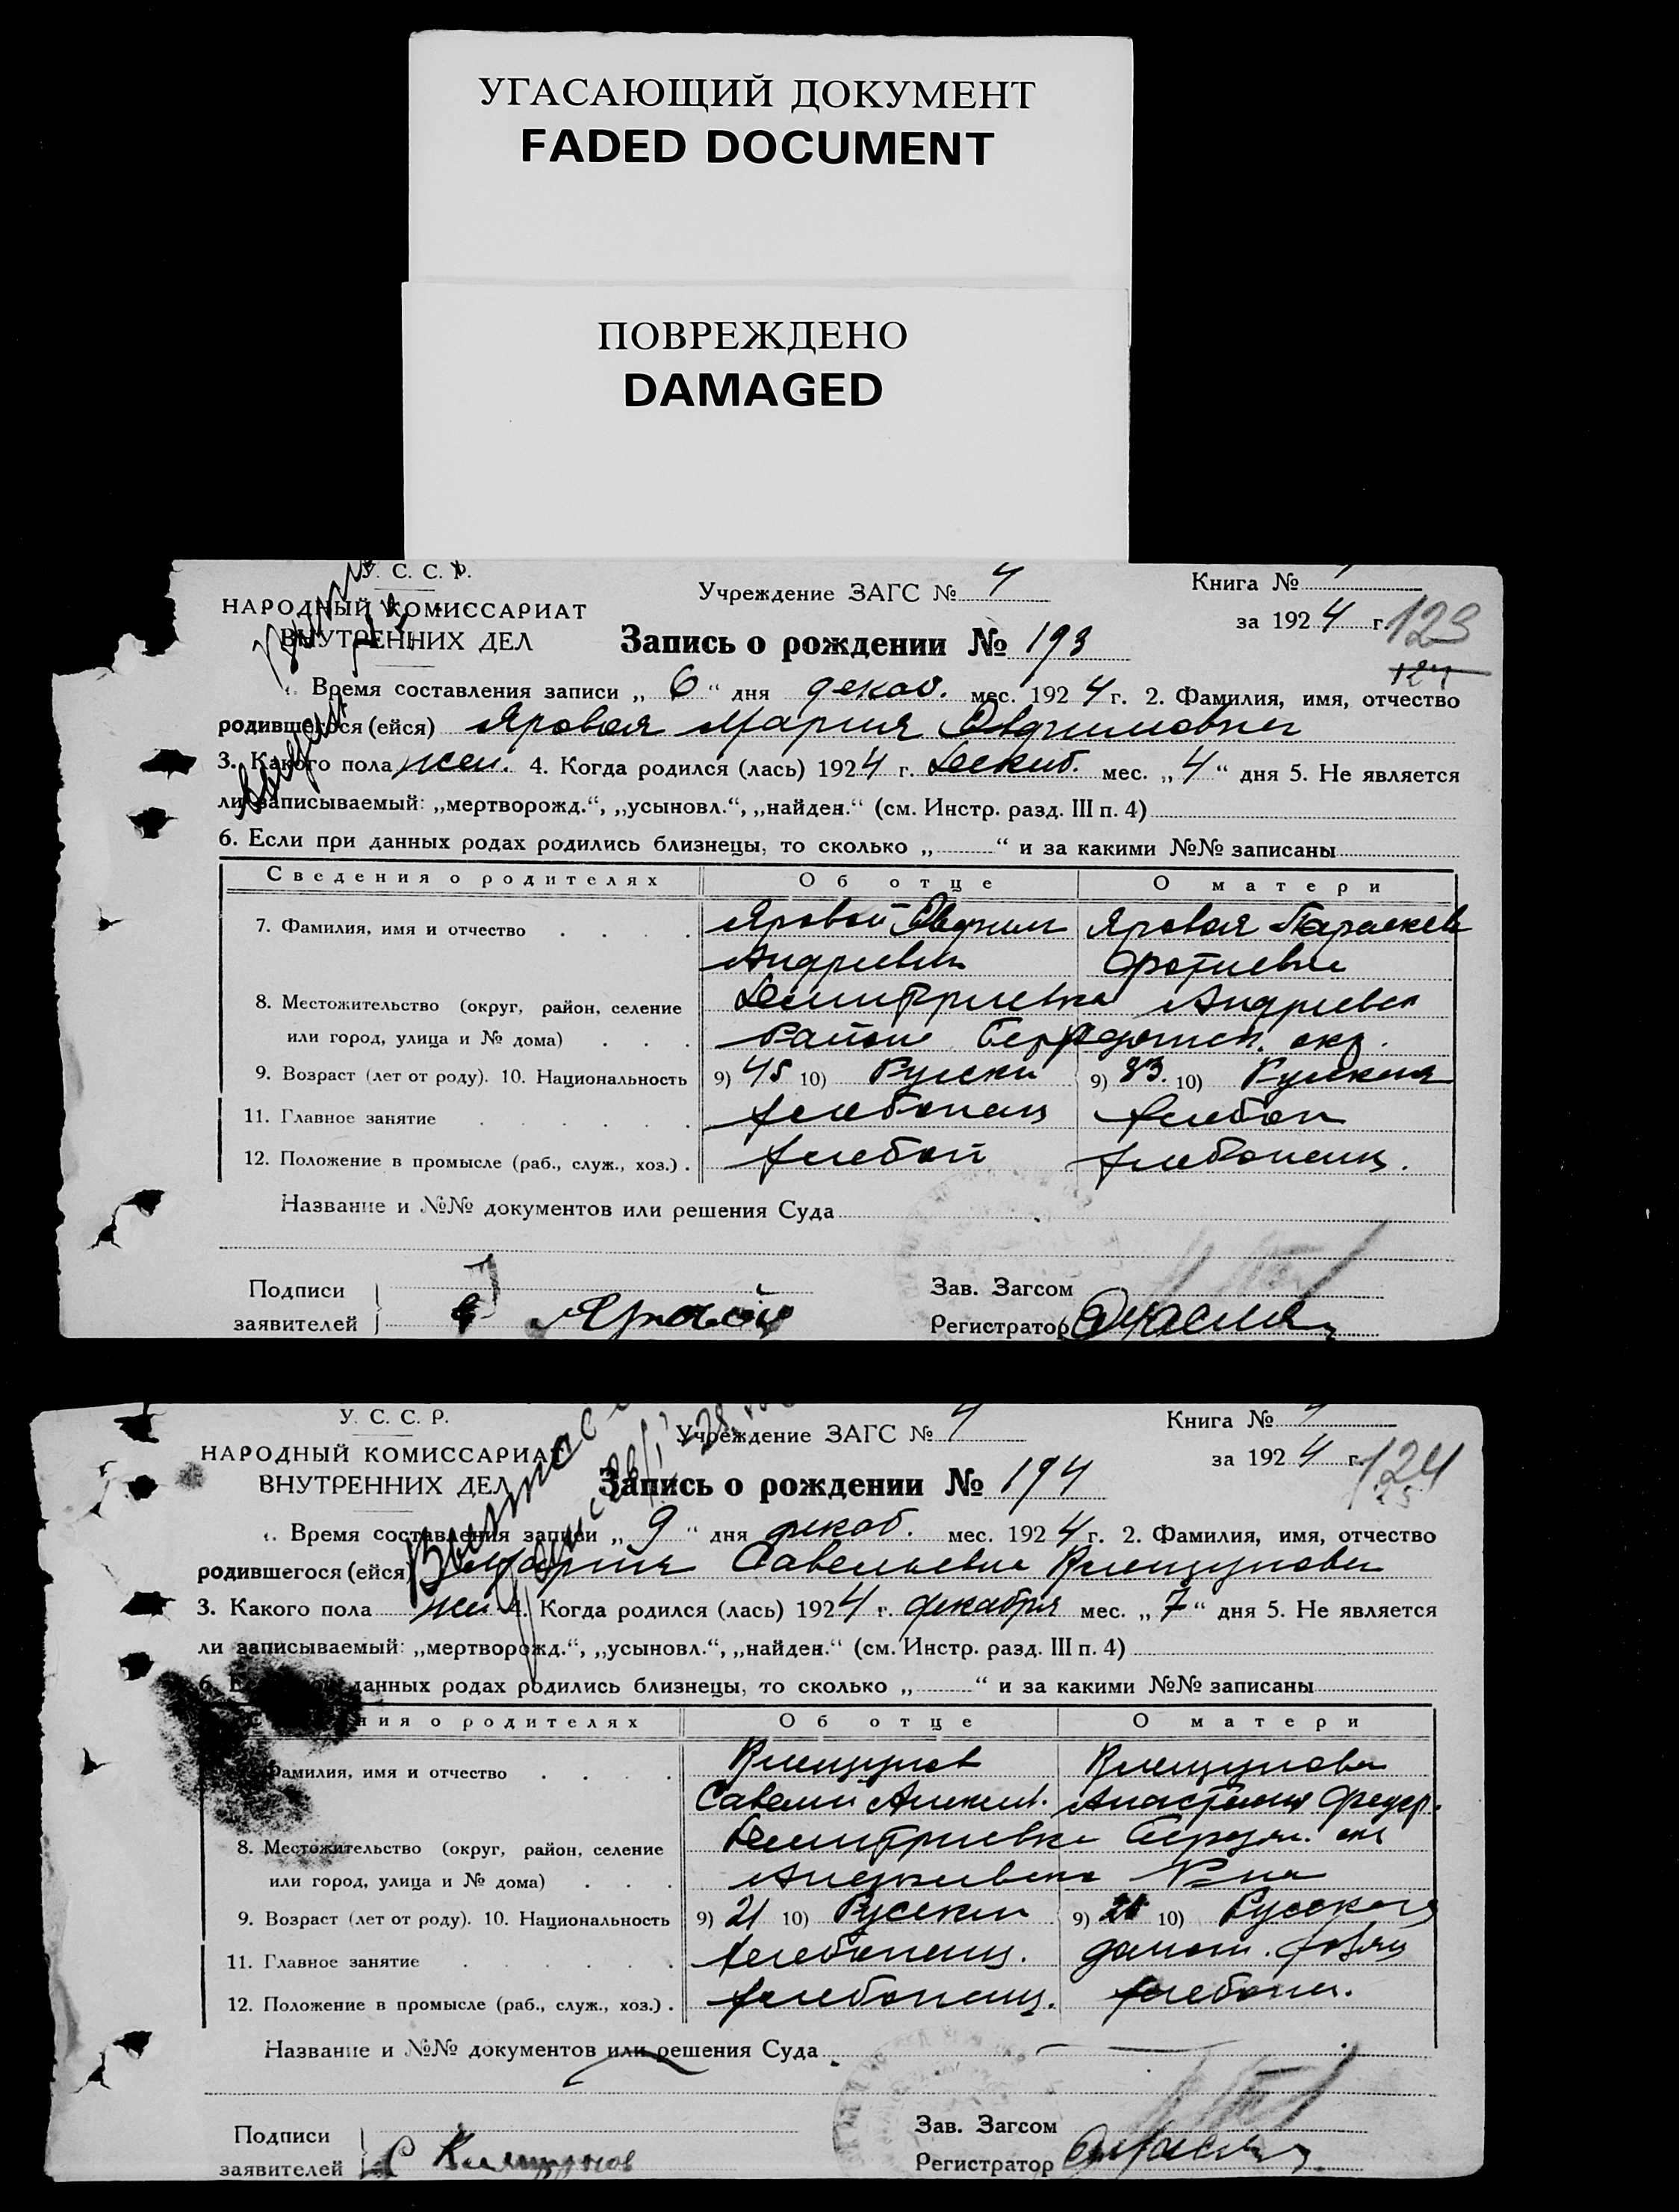 УГАСАЮЩИЙ ДОКУМЕНТ
FADED DOCUMENT
ПОВРЕЖДЕНО
DAMAGED
У. С. С. Р.
НАРОДНЫЙ КОМИССАРИАТ
ВНУТРЕННИХ ДЕЛ
Учреждение ЗАГС № 4
Книга №
за 1924 г. 123
124
Запись о рождении № 193
1. Время составления записи „ 6 “ дня декаб. мес. 1924 г. 2. Фамилия, имя, отчество
родившегося (ейся) Яровая Мария Авдимовна
3. Какого пола жен. 4. Когда родился (лась) 1924 г. Декаб. мес. „ 4 “ дня 5. Не является
ли записываемый: „мертворожд.“, „усыновл.“, „найден.“ (см. Инстр. разд. III п. 4)
6. Если при данных родах родились близнецы, то сколько „ “ и за какими №№ записаны
Сведения о родителях Об отце О матери
7. Фамилия, имя и отчество Яровой Авдим Яровая Параскева
Андреевич Фотиевна
8. Местожительство (округ, район, селение Демитриевка Андреевск
или город, улица и № дома) Района Бердянск. окр.
9. Возраст (лет от роду). 10. Национальность 9) 45 10) Руски 9) 33. 10) Руская
11. Главное занятие хлебопаш хлебоп
12. Положение в промысле (раб., служ., хоз.) . хлебоп хлебопашц.
Название и №№ документов или решения Суда
Подписи
заявителей Яровой
Зав. Загсом
Регистратор
У. С. С. Р.
НАРОДНЫЙ КОМИССАРИАТ
ВНУТРЕННИХ ДЕЛ
Учреждение ЗАГС № 4
Книга № 4
за 1924 г. 124
Запись о рождении № 194
1. Время составления записи „ 9 “ дня декаб. мес. 1924 г. 2. Фамилия, имя, отчество
родившегося (ейся) Мария Савельевна Клещунова
3. Какого пола жен 4. Когда родился (лась) 1924 г. декабря мес. „ 7 “ дня 5. Не является
ли записываемый: „мертворожд.“, „усыновл.“, „найден.“ (см. Инстр. разд. III п. 4)
6. данных родах родились близнецы, то сколько „ “ и за какими №№ записаны
ния о родителях Об отце О матери
Фамилия, имя и отчество Клещунов Клещунова
Савелий Алексеев. Анастасия Федор.
8. Местожительство (округ, район, селение Демитриевка Бердян. окр
или город, улица и № дома) Андреевска Р-на
9. Возраст (лет от роду). 10. Национальность 9) 21 10) Русский 9) 21 10) Русская
11. Главное занятие хлебопашц. домаш. хозяц
12. Положение в промысле (раб., служ., хоз.) . хлебопашц. хлебопаш.
Название и №№ документов или решения Суда
Подписи
заявителей С Клещунов
Зав. Загсом
Регистратор